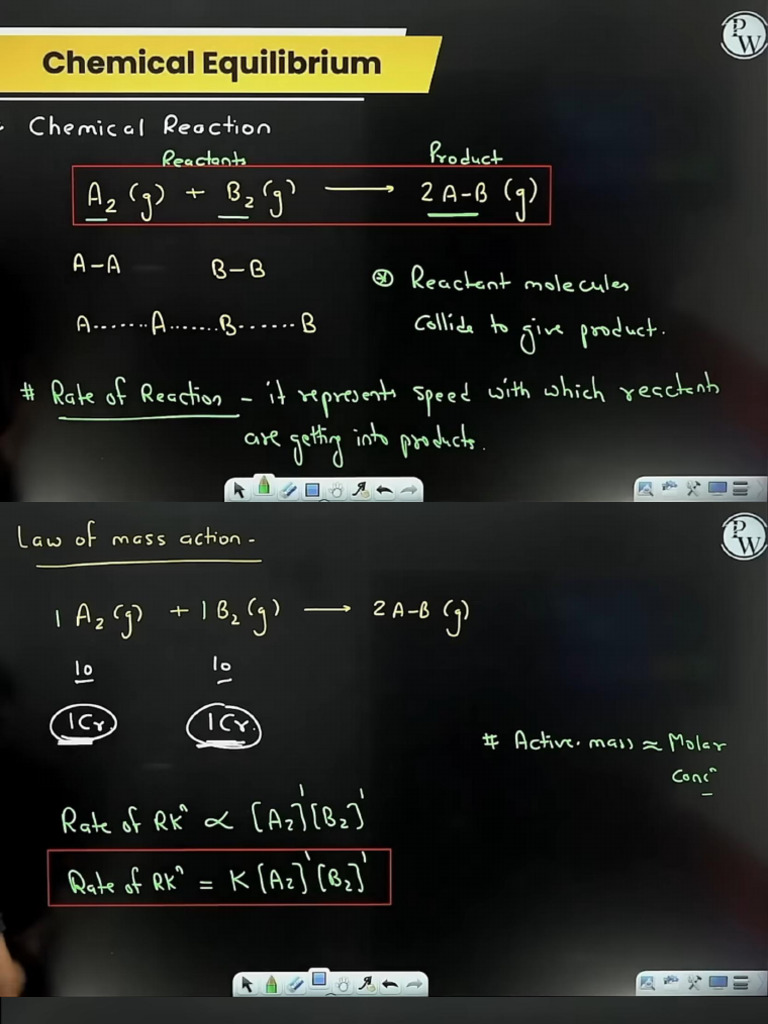 PW
Chemical Equilibrium
Chemical Reaction
Reactants Product
A₂ (g) + B₂ (g) ⟶ 2 A-B (g)
A-A B-B
⊛ Reactant molecules
A.......A.......B......B collide to give product.
# Rate of Reaction - it represents speed with which reactants
are getting into products.
Law of mass action -
PW
1 A₂ (g) + 1 B₂ (g) ⟶ 2 A-B (g)
10 10
1Cr. 1Cr.
# Active mass ≈ Molar
Concⁿ
Rate of RKⁿ ∝ [A₂]¹[B₂]¹
Rate of RKⁿ = K[A₂]¹[B₂]¹